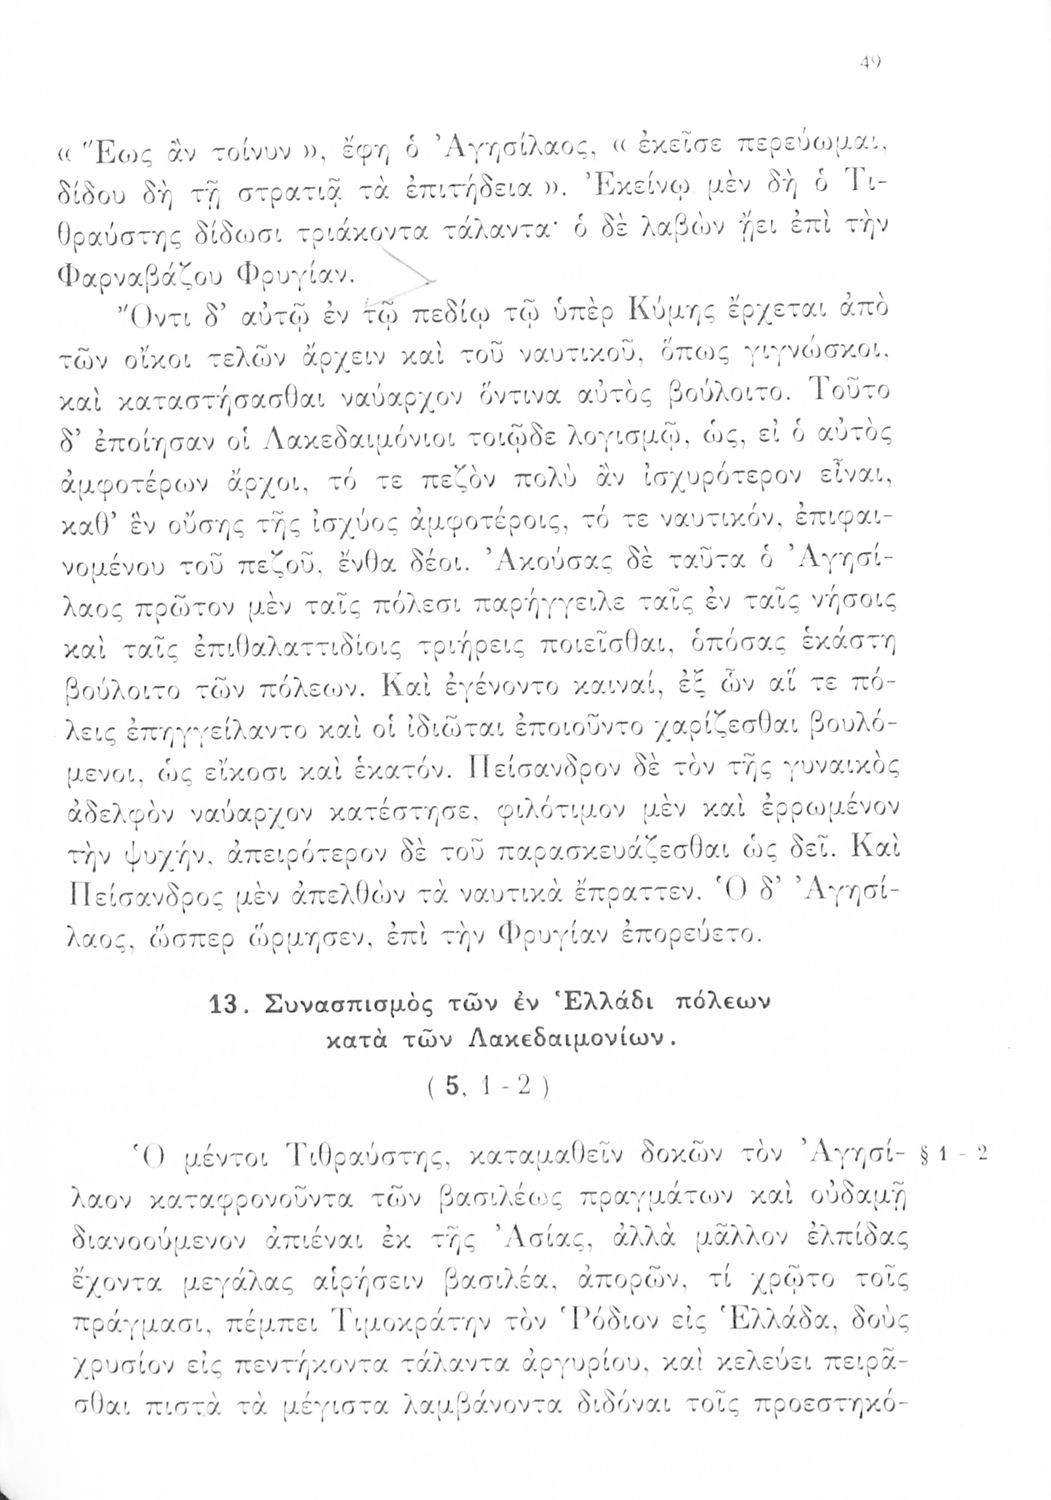 49
« Ἕως ἂν τοίνυν », ἔφη ὁ Ἀγησίλαος, « ἐκεῖσε περεύωμαι,
δίδου δὴ τῇ στρατιᾷ τὰ ἐπιτήδεια ». Ἐκείνῳ μὲν δὴ ὁ Τι-
θραύστης δίδωσι τριάκοντα τάλαντα· ὁ δὲ λαβὼν ᾔει ἐπὶ τὴν
Φαρναβάζου Φρυγίαν.
Ὄντι δ’ αὐτῷ ἐν τῷ πεδίῳ τῷ ὑπὲρ Κύμης ἔρχεται ἀπὸ
τῶν οἴκοι τελῶν ἄρχειν καὶ τοῦ ναυτικοῦ, ὅπως γιγνώσκοι,
καὶ καταστήσασθαι ναύαρχον ὅντινα αὐτὸς βούλοιτο. Τοῦτο
δ’ ἐποίησαν οἱ Λακεδαιμόνιοι τοιῷδε λογισμῷ, ὡς, εἰ ὁ αὐτὸς
ἀμφοτέρων ἄρχοι, τό τε πεζὸν πολὺ ἂν ἰσχυρότερον εἶναι,
καθ’ ἓν οὔσης τῆς ἰσχύος ἀμφοτέροις, τό τε ναυτικόν, ἐπιφαι-
νομένου τοῦ πεζοῦ, ἔνθα δέοι. Ἀκούσας δὲ ταῦτα ὁ Ἀγησί-
λαος πρῶτον μὲν ταῖς πόλεσι παρήγγειλε ταῖς ἐν ταῖς νήσοις
καὶ ταῖς ἐπιθαλαττιδίοις τριήρεις ποιεῖσθαι, ὁπόσας ἑκάστη
βούλοιτο τῶν πόλεων. Καὶ ἐγένοντο καιναί, ἐξ ὧν αἵ τε πό-
λεις ἐπηγγείλαντο καὶ οἱ ἰδιῶται ἐποιοῦντο χαρίζεσθαι βουλό-
μενοι, ὡς εἴκοσι καὶ ἑκατόν. Πείσανδρον δὲ τὸν τῆς γυναικὸς
ἀδελφὸν ναύαρχον κατέστησε, φιλότιμον μὲν καὶ ἐρρωμένον
τὴν ψυχήν, ἀπειρότερον δὲ τοῦ παρασκευάζεσθαι ὡς δεῖ. Καὶ
Πείσανδρος μὲν ἀπελθὼν τὰ ναυτικὰ ἔπραττεν. Ὁ δ’ Ἀγησί-
λαος, ὥσπερ ὥρμησεν, ἐπὶ τὴν Φρυγίαν ἐπορεύετο.
13. Συνασπισμὸς τῶν ἐν Ἑλλάδι πόλεων
κατὰ τῶν Λακεδαιμονίων.
( 5, 1 - 2 )
Ὁ μέντοι Τιθραύστης, καταμαθεῖν δοκῶν τὸν Ἀγησί- § 1 - 2
λαον καταφρονοῦντα τῶν βασιλέως πραγμάτων καὶ οὐδαμῇ
διανοούμενον ἀπιέναι ἐκ τῆς Ἀσίας, ἀλλὰ μᾶλλον ἐλπίδας
ἔχοντα μεγάλας αἱρήσειν βασιλέα, ἀπορῶν, τί χρῷτο τοῖς
πράγμασι, πέμπει Τιμοκράτην τὸν Ῥόδιον εἰς Ἑλλάδα, δοὺς
χρυσίον εἰς πεντήκοντα τάλαντα ἀργυρίου, καὶ κελεύει πειρᾶ-
σθαι πιστὰ τὰ μέγιστα λαμβάνοντα διδόναι τοῖς προεστηκό-